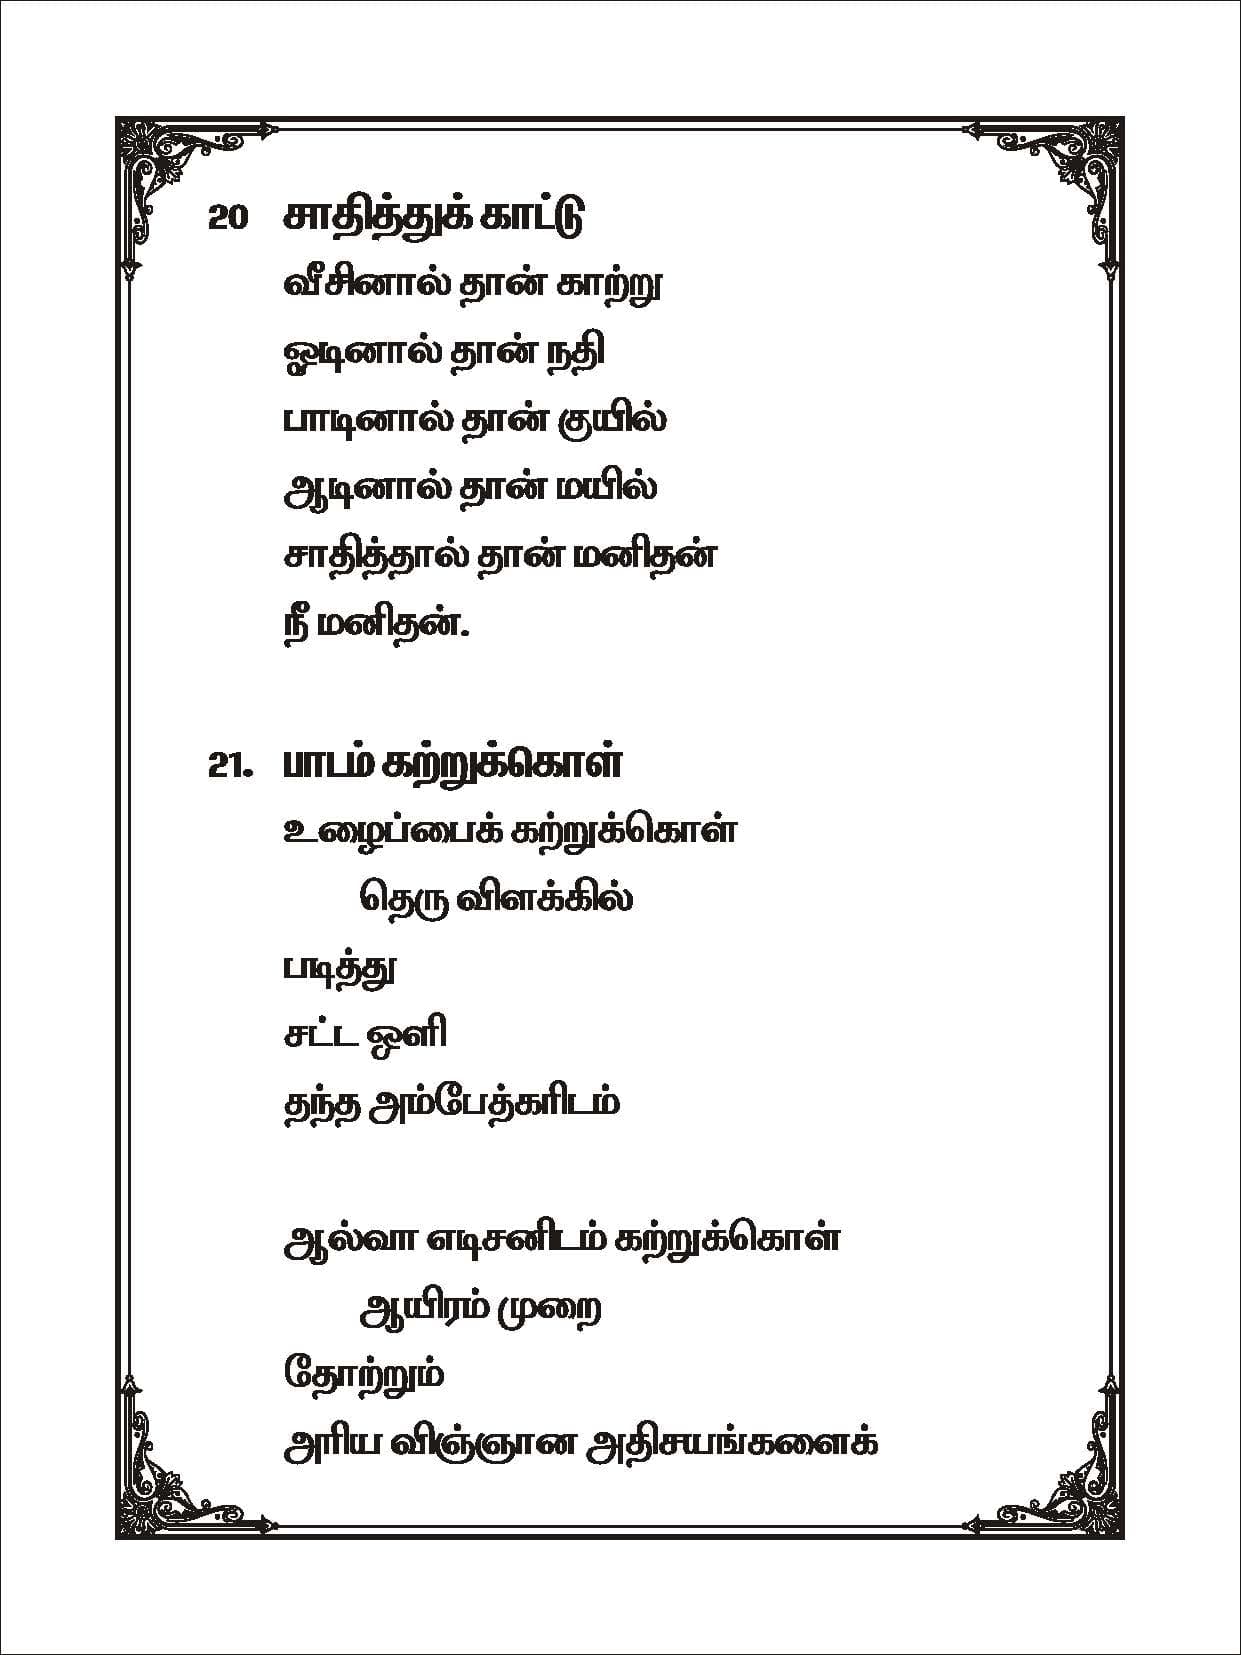 20 சாதித்துக் காட்டு
வீசினால் தான் காற்று
ஓடினால் தான் நதி
பாடினால் தான் குயில்
ஆடினால் தான் மயில்
சாதித்தால் தான் மனிதன்
நீ மனிதன்.
21. பாடம் கற்றுக்கொள்
உழைப்பைக் கற்றுக்கொள்
தெரு விளக்கில்
படித்து
சட்ட ஒளி
தந்த அம்பேத்கரிடம்
ஆல்வா எடிசனிடம் கற்றுக்கொள்
ஆயிரம் முறை
தோற்றும்
அரிய விஞ்ஞான அதிசயங்களைக்